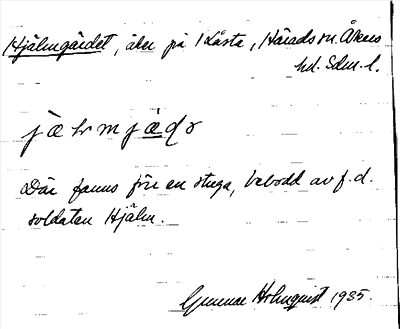 Hjälmgärdet, åker på Kåsta, Härads sn. Åkers
hd. Sdm. l.
Där fanns förr en stuga, bebodd av f.d.
soldaten Hjälm.
Gunnar Holmquist 1935.